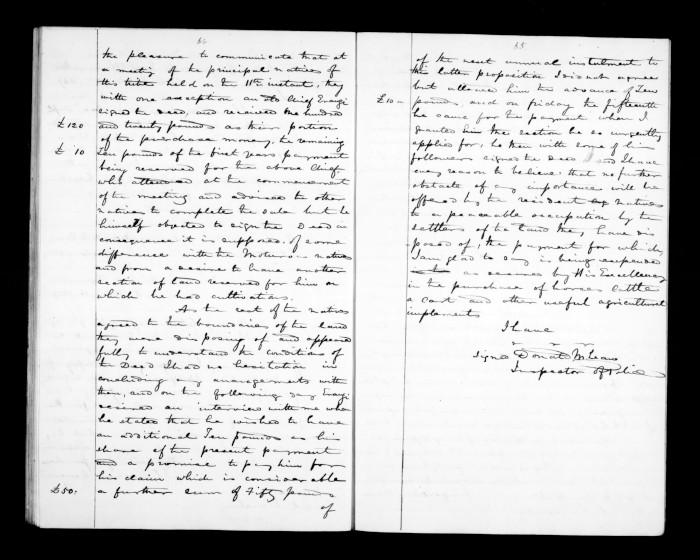 64
the pleasure to communicate that at
a meeting of the principal natives of
this tribe held on the 11th instant, they
with one exception an old Chief
signed the Deed, and received One hundred
£120 and twenty pounds as their portion
of the purchase money, the remaining
£10 Ten pounds of the first years payment
being reserved for the above Chief,
who attended at the commencement
of the meeting and advised the other
natives to complete the sale but he
himself objected to sign the Deed in
consequence it is supposed of some
difference with the natives
and from a desire to have another
section of land reserved for him on
which he had cultivations.
As the rest of the natives
agreed to the boundaries of the land
they were disposing of and appeared
fully to understand the conditions of
the Deed I had no hesitation in
concluding any arrangements with
them, and on the following day
desired an interview with me when
he stated that he wished to have
an additional Ten pounds as his
share of the present payment
and a promise to pay him for
his claim which is considerable
£50. a further sum of Fifty pounds
of
65
of the next annual instalment to
the latter proposition I did not agree
but allowed him the advance of Ten
£10 pounds, and on Friday the fifteenth
he came for the payment when I
granted him the section he so urgently
applied for, he then with some of his
followers signed the Deed and I have
every reason to believe that no further
obstacle of any importance will be
offered by the resident natives
to a peaceable occupation by the
settlers of the land they have dis
posed of, the payment for which
I am glad to say is being expended
as desired by His Excellency
in the purchase of horses Cattle
a Cart and other useful agricultural
implements
I have
Signed Donald McLean
Inspector of Police